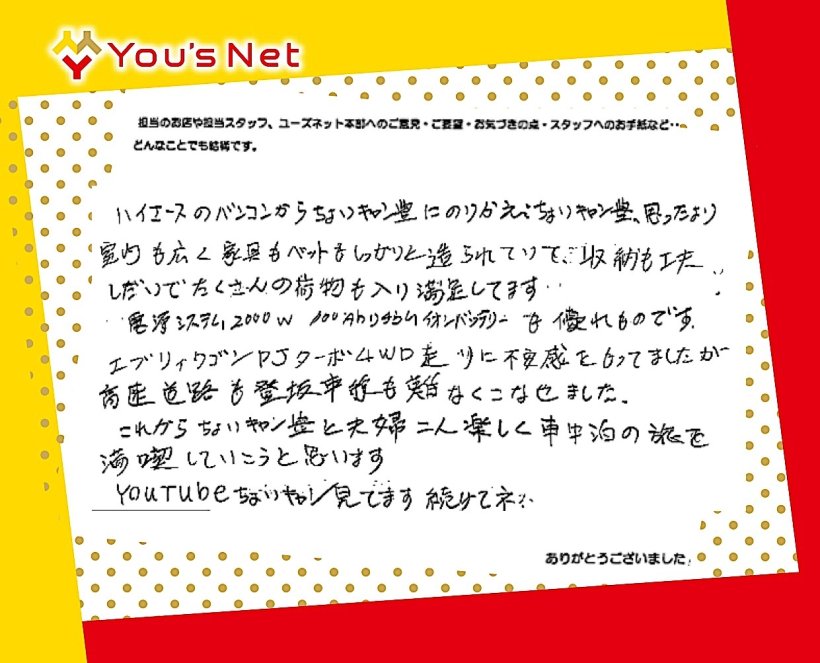 You's Net
担当のお店や担当スタッフ、ユーズネット本部へのご意見・ご要望・お気づきの点・スタッフへのお手紙など・・
どんなことでも結構です。
ハイエースのバンコンからちょいキャン豊にのりかえ、ちょいキャン豊、思ったより
室内も広く家具もベットもしっかりと造られていて、収納も工夫
しだいでたくさんの荷物も入り満足してます‥
電源システム2000W 100Ahリチウムイオンバッテリーも優れものです.
エブリイワゴンPJターボ4WD走りに不安感をもってましたが
高速道路も登坂車線も難なくこなせました.
これからちょいキャン豊と夫婦二人楽しく車中泊の旅を
満喫していこうと思います
YouTubeちょいキャン見てます 続けてネ‥
ありがとうございました